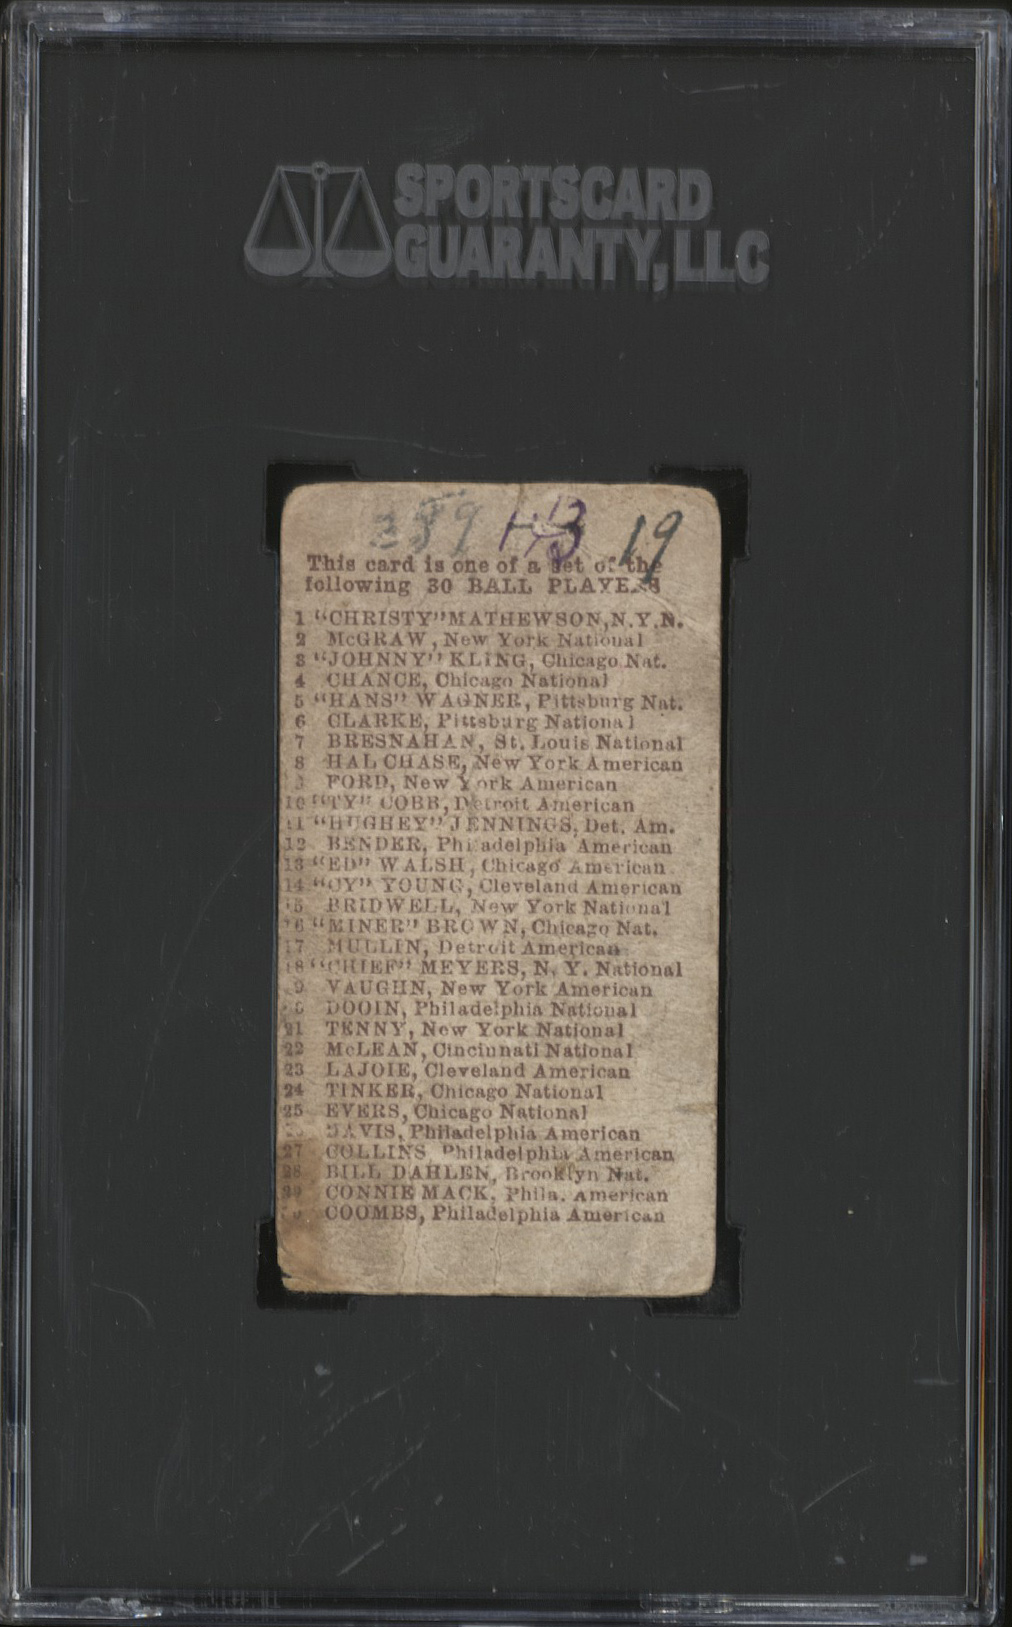 SPORTSCARD
GUARANTY, LLC
389 19
This card is one of a set of the
following 30 BALL PLAYERS
1 "CHRISTY" MATHEWSON, N.Y.N.
2 McGRAW, New York National
3 "JOHNNY" KLING, Chicago Nat.
4 CHANCE, Chicago National
5 "HANS" WAGNER, Pittsburg Nat.
6 CLARKE, Pittsburg National
7 BRESNAHAN, St. Louis National
8 HAL CHASE, New York American
9 FORD, New York American
10 "TY" COBB, Detroit American
11 "HUGHEY" JENNINGS, Det. Am.
12 BENDER, Philadelphia American
13 "ED" WALSH, Chicago American
14 "CY" YOUNG, Cleveland American
15 BRIDWELL, New York National
16 "MINER" BROWN, Chicago Nat.
17 MULLIN, Detroit American
18 "CHIEF" MEYERS, N. Y. National
19 VAUGHN, New York American
20 DOOIN, Philadelphia National
21 TENNY, New York National
22 McLEAN, Cincinnati National
23 LAJOIE, Cleveland American
24 TINKER, Chicago National
25 EVERS, Chicago National
26 DAVIS, Philadelphia American
27 COLLINS, Philadelphia American
28 BILL DAHLEN, Brooklyn Nat.
29 CONNIE MACK, Phila. American
30 COOMBS, Philadelphia American